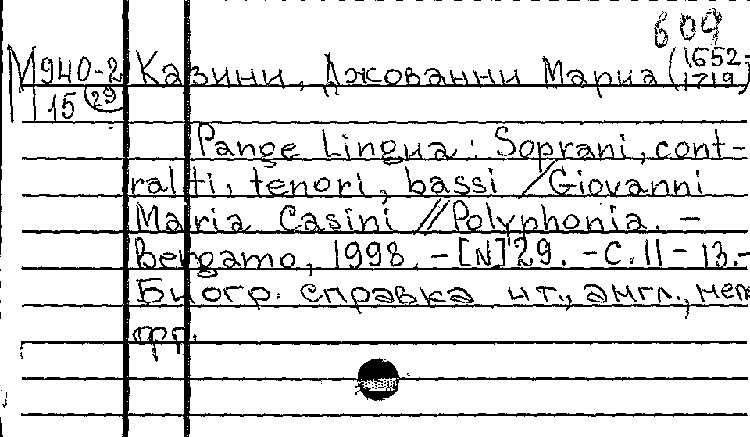 609
М940-2 Казини, Джованни Мариа (1652-
15 (29) 1719)
Pange Lingua : Soprani, cont-
ralti, tenori, bassi / Giovanni
Maria Casini // Polyphonia. -
Bergamo, 1998. - [N] 29. - С. 11 - 13.-
Биогр. справка ит., англ., нем
фр.